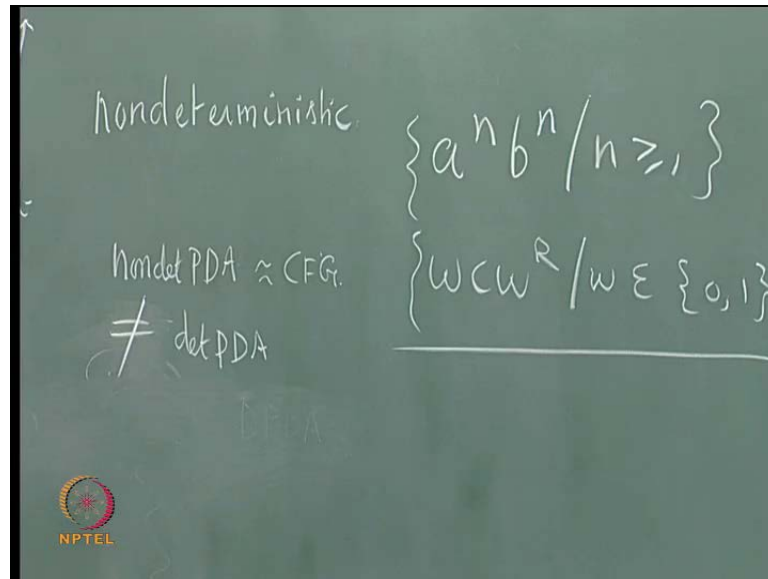 nondeterministic.
{a^n b^n / n ≥ 1}
nondet PDA ≈ CFG.
≠ det PDA
{wcw^R / w ε {0,1}
NPTEL